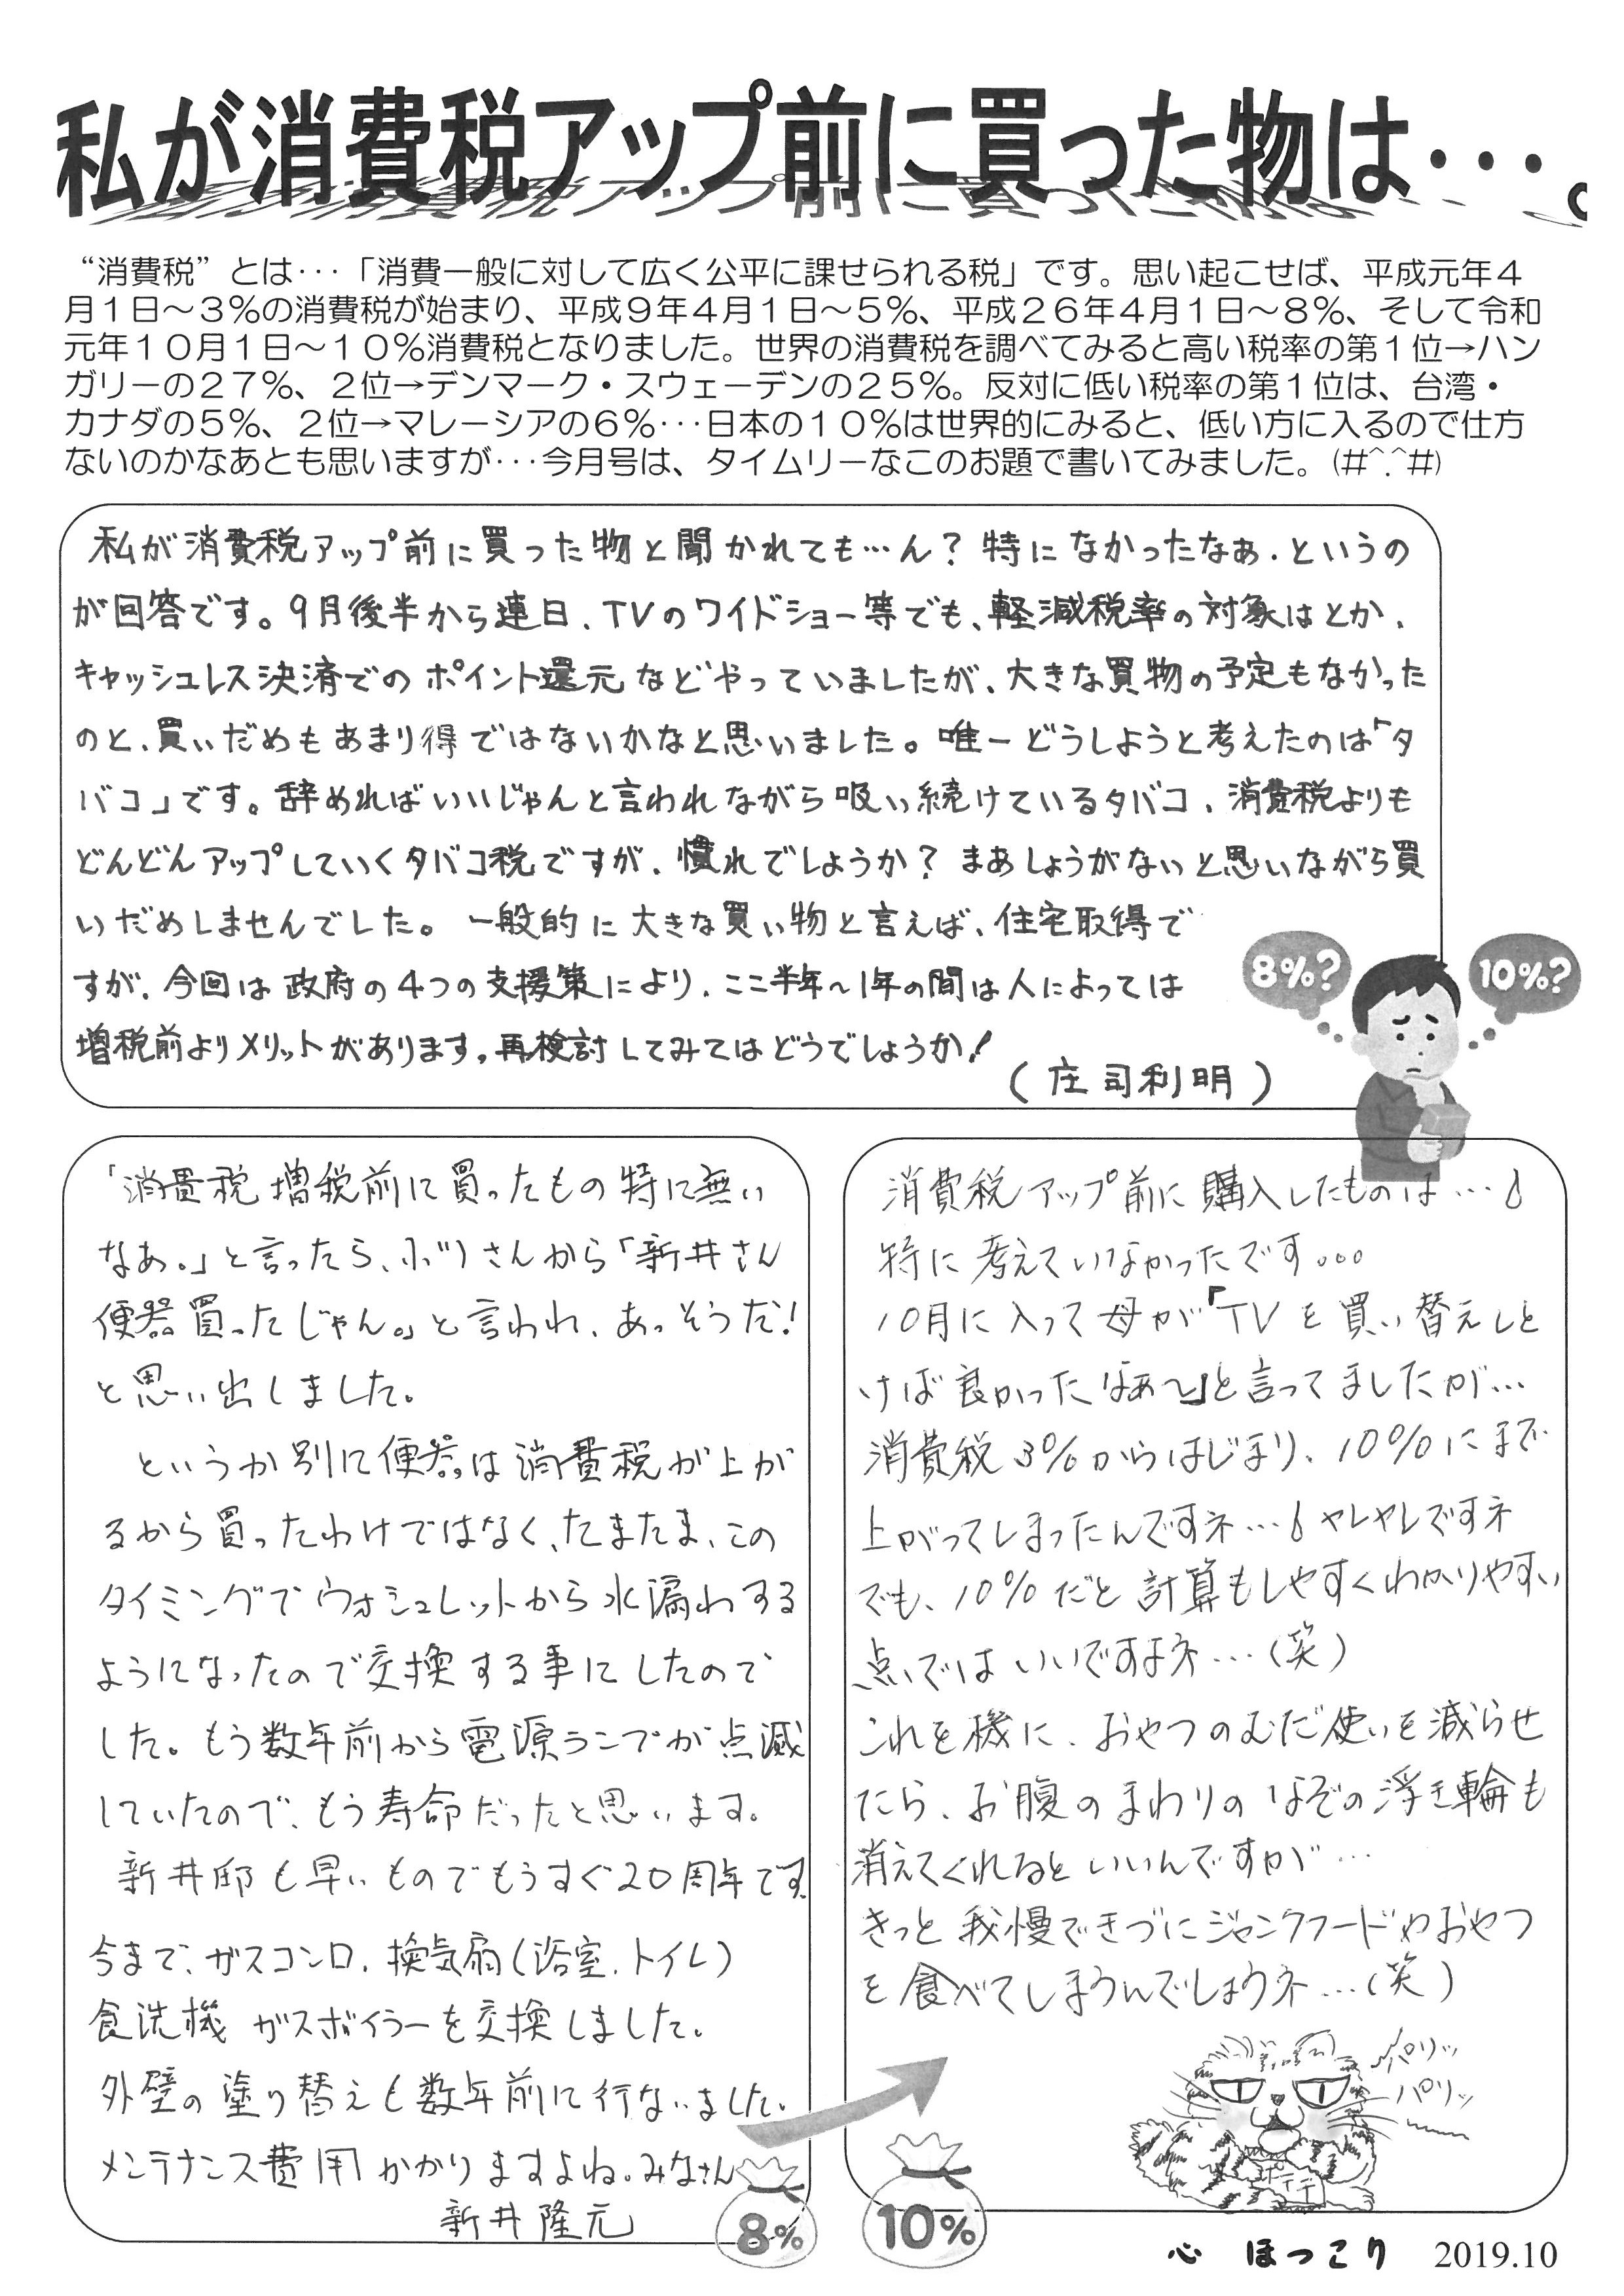 私が消費税アップ前に買った物は・・・。
“消費税”とは・・・「消費一般に対して広く公平に課せられる税」です。思い起こせば、平成元年４
月１日～３％の消費税が始まり、平成９年４月１日～５％、平成２６年４月１日～８％、そして令和
元年１０月１日～１０％消費税となりました。世界の消費税を調べてみると高い税率の第１位→ハン
ガリーの２７％、２位→デンマーク・スウェーデンの２５％。反対に低い税率の第１位は、台湾・
カナダの５％、２位→マレーシアの６％・・・日本の１０％は世界的にみると、低い方に入るので仕方
ないのかなあとも思いますが・・・今月号は、タイムリーなこのお題で書いてみました。(#^.^#)
私が消費税アップ前に買った物と聞かれても…ん？特になかったなぁ．というの
が回答です。9月後半から連日、TVのワイドショー等でも、軽減税率の対象はとか、
キャッシュレス決済でのポイント還元などやっていましたが、大きな買物の予定もなかった
のと、買いだめもあまり得ではないかなと思いました。唯一どうしようと考えたのは「タ
バコ」です。辞めればいいじゃんと言われながら吸い続けているタバコ、消費税よりも
どんどんアップしていくタバコ税ですが、慣れでしょうか？まあしょうがないと思いながら買
いだめしませんでした。一般的に大きな買い物と言えば、住宅取得で
すが、今回は政府の4つの支援策により、ここ半年～1年の間は人によっては
増税前よりメリットがあります。再検討してみてはどうでしょうか！
(庄司利明)
8%?
10%?
「消費税増税前に買ったもの特に無い
なぁ。」と言ったら、ボソさんから「新井さん
便器買ったじゃん。」と言われ、あっそうだ！
と思い出しました。
というか別に便器は消費税が上が
るから買ったわけではなく、たまたま、この
タイミングでウォシュレットから水漏れする
ようになったので交換する事にしたので
した。もう数年前から電源ランプが点滅
していたので、もう寿命だったと思います。
新井邸も早いものでもうすぐ20周年です。
今まで、ガスコンロ、換気扇(浴室、トイレ)
食洗機 ガスボイラーを交換しました。
外壁の塗り替えも数年前に行ないました。
メンテナンス費用かかりますよね。みなさん
新井隆元
消費税アップ前に購入したものは…
特に考えていなかったです。。。
10月に入って母が「TVを買い替えしと
けば良かったなぁ～」と言ってましたが…
消費税3%からはじまり、10%にまで
上がってしまったんですネ…ヤレヤレですネ
でも、10%だと計算もしやすくわかりやすい
点ではいいですよネ…(笑)
これを機に、おやつのむだ使いを減らせ
たら、お腹のまわりのなぞの浮き輪も
消えてくれるといいんですが…
きっと我慢できづにジャンクフードやおやつ
を食べてしまうんでしょうネ…(笑)
パリッ
パリッ
ポテチ
8%
10%
心 ほっこり 2019.10